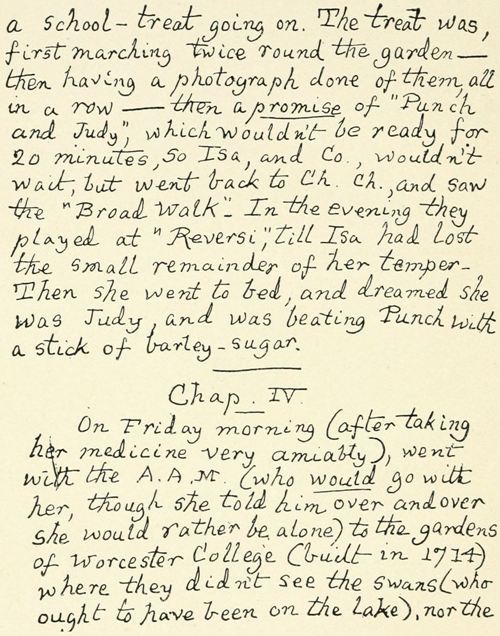 a school-treat going on. The treat was,
first marching twice round the garden—
then having a photograph done of them, all
in a row — then a promise of "Punch
and Judy", which wouldn't be ready for
20 minutes, so Isa, and Co., wouldn't
wait, but went back to Ch. Ch., and saw
the "Broad Walk". In the evening they
played at "Reversi", till Isa had lost
the small remainder of her temper.
Then she went to bed, and dreamed she
was Judy, and was beating Punch with
a stick of barley-sugar.
Chap. IV.
On Friday morning (after taking
her medicine very amiably), went
with the A.A.M. (who would go with
her, though she told him over and over
she would rather be alone) to the gardens
of Worcester College (built in 1714)
where they didn't see the swans (who
ought to have been on the lake), nor the